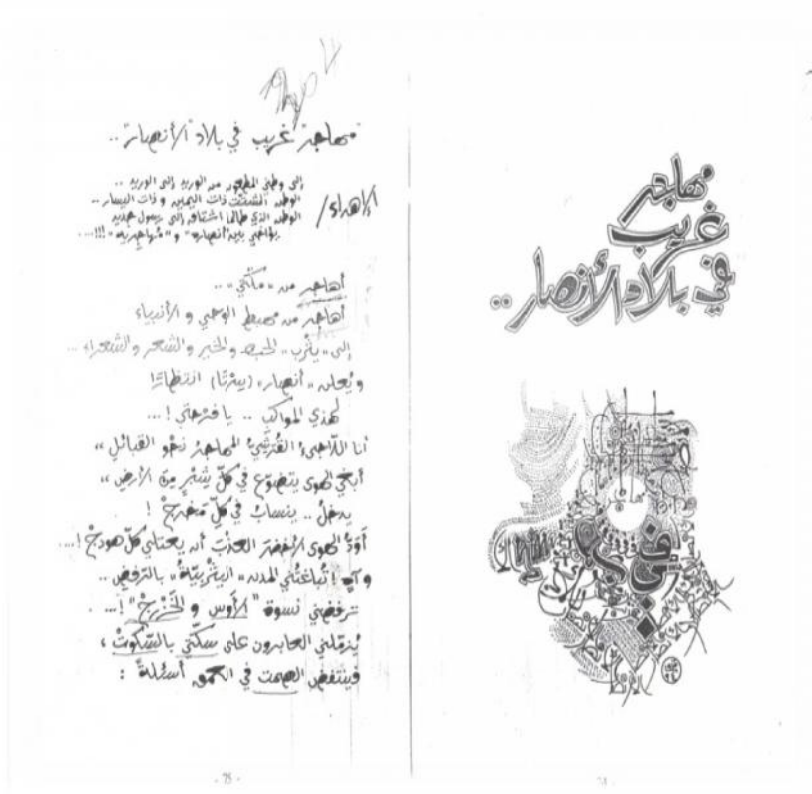 مهاجر
غريب
في بلاد الأنصار..
مهاجر غريب في بلاد "الأنصار"..
الإهداء/
إلى وطني المطعون من الوريد إلى الوريد ..
الوطن المشتت ذات اليمين و ذات اليسار ..
الوطن الذي طالما اشتاق إلى رسول جديد
يؤاخي بين "أنصاره" و "مهاجريه" !!!...
أهاجر من "مكّتي" ..
أهاجر من مهبط الوحي و الأنبياء
إلى "يثرب" الحب و الخير و الشعر و الشعراء ...
و يُعلن "أنصار" (سِرْتَا) انتظارًا
لهذي المواكب .. يا فرحتي !...
أنا اللّاجئ القُرَشِيُّ المهاجرُ نحوَ القبائل ،،
أبغي الهوى يتضوّع في كلّ شِبْرٍ مِنَ الأرضِ ،،
يدخلُ .. ينسابُ في كلّ مَخرجْ !
أوَدُّ الهوى الأخضرَ العذبَ أن يعتلي كلّ هودجْ !...
و آهِ ! تُباغتُني المدن "اليثْربيّةُ" بالترفضِ ..
ترفضني نسوة "الأوس و الخَزْرجْ" !...
يُزمّلني العابرون على سكّتي بالسّكوتْ ،
فينتفض الصمت في العمق أسئلةً :
- 95 -